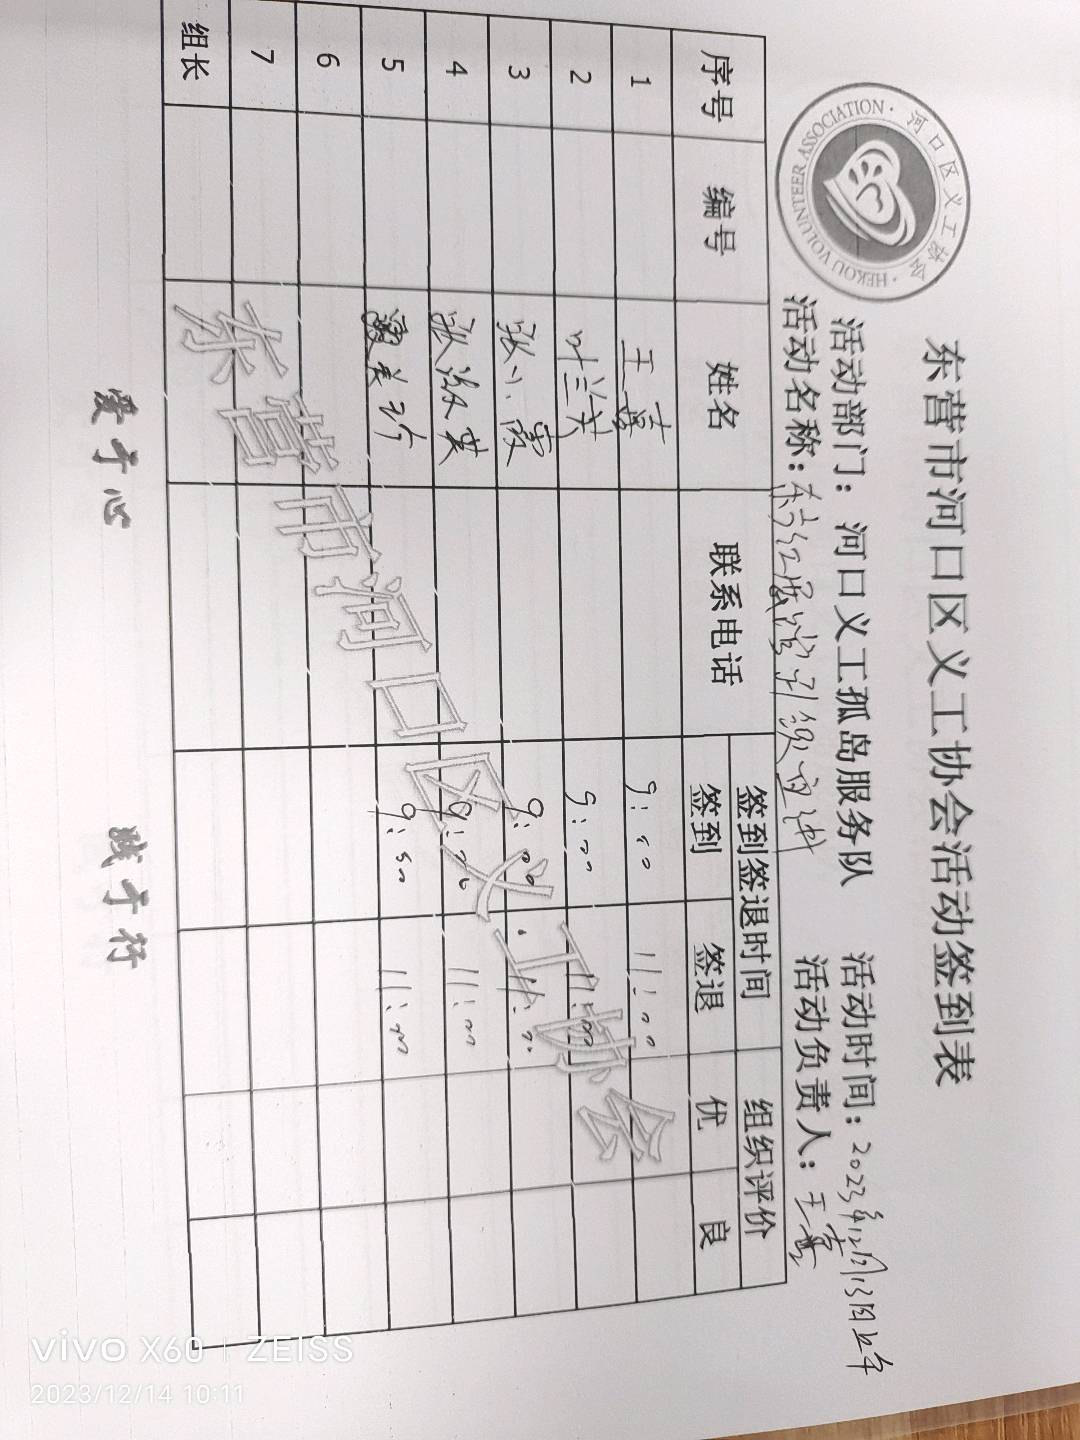 东营市河口区义工协会活动签到表
河口区义工协会
HEKOU VOLUNTEER ASSOCIATION
活动部门：河口义工孤岛服务队 活动时间：2023年12月13日上午
活动名称：东方红展馆 活动负责人：王
序号 编号 姓名 联系电话 签到签退时间 组织评价
签到 签退 优 良
1 王 9:00 11:00
2 叶兰芙 9:00 11:00
3 张小霞 9:00 11:00
4 张淑英 9:00 11:00
5 9:00 11:00
6
7
组长
东营市河口区义工协会
爱于心 践于行
vivo X60 | ZEISS
2023/12/14 10:11